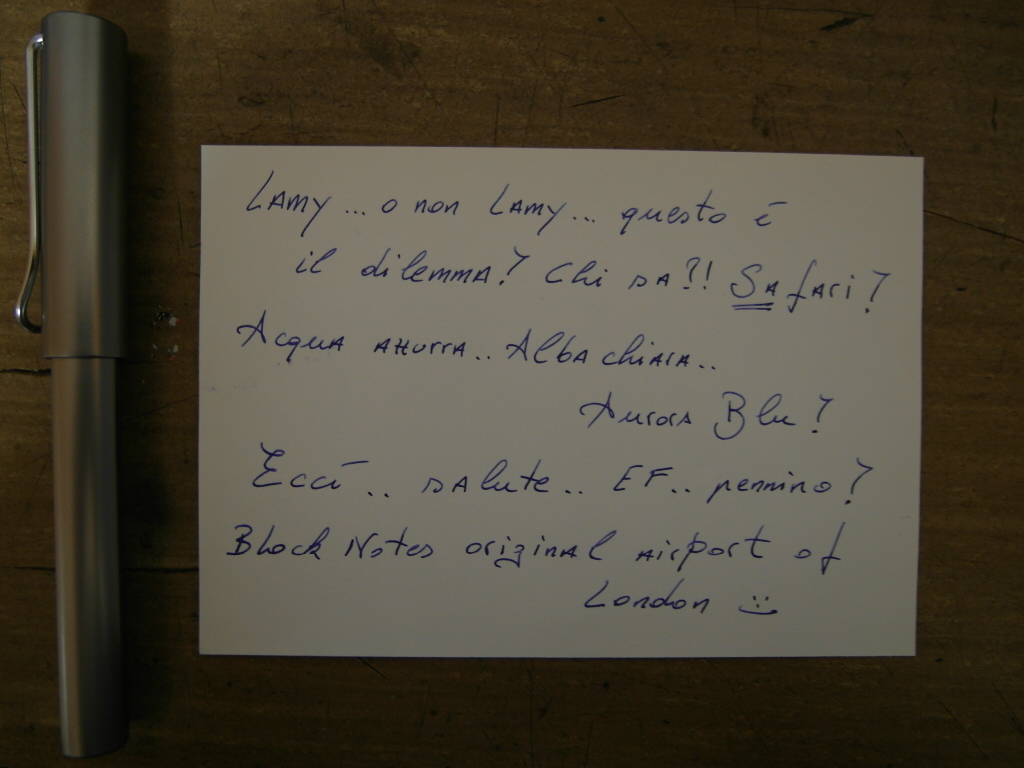 LAMY... o non LAMY... questo è
il dilemma? Chi sa?! Safari?
Acqua azzurra.. Alba chiara..
Aurora Blu?
Eccì.. salute.. EF.. pennino?
Block Notes original airport of
London :)